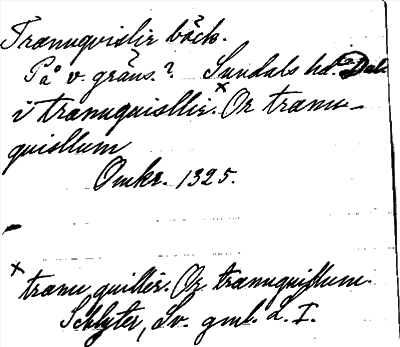 Trænuqvislir bäck.
På v. gräns.? Sundals hd. Dal
i trænuquisllir.× Or trænu-
quisllum
Omkr. 1325.
× trænu quillir. Or trænuquisllum.
Schlyter, Sv. gml. L. I.